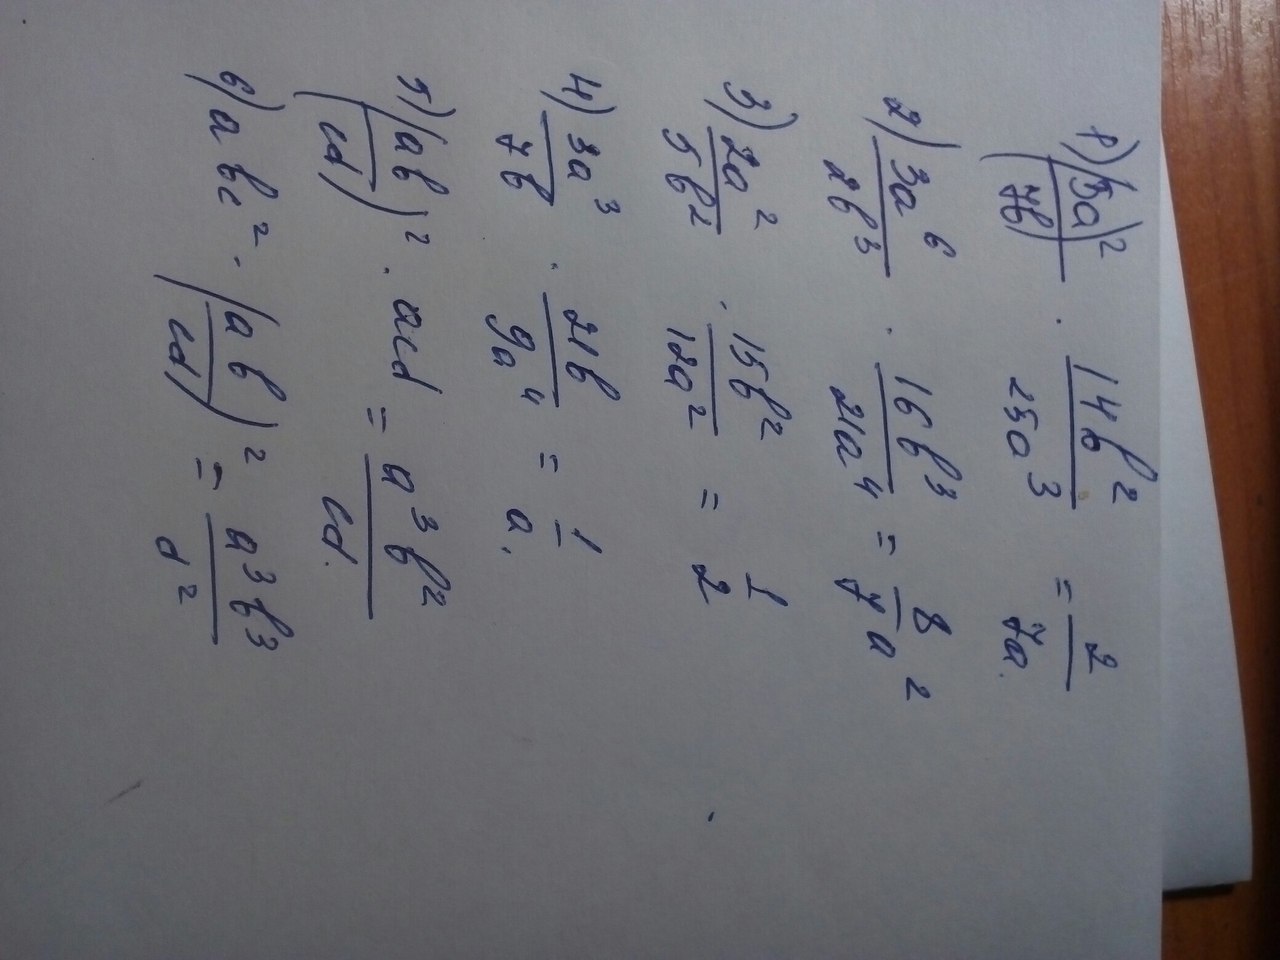 1) (5a/7b)² · 14b²/25a³ = 2/7a.
2) 3a⁶/2b³ · 16b³/21a⁴ = 8/7 a²
3) 2a²/5b² · 15b²/12a² = 1/2
4) 3a³/7b · 21b/9a⁴ = 1/a.
5) (ab/cd)² · acd = a³b²/cd.
6) abc² · (ab/cd)² = a³b³/d²